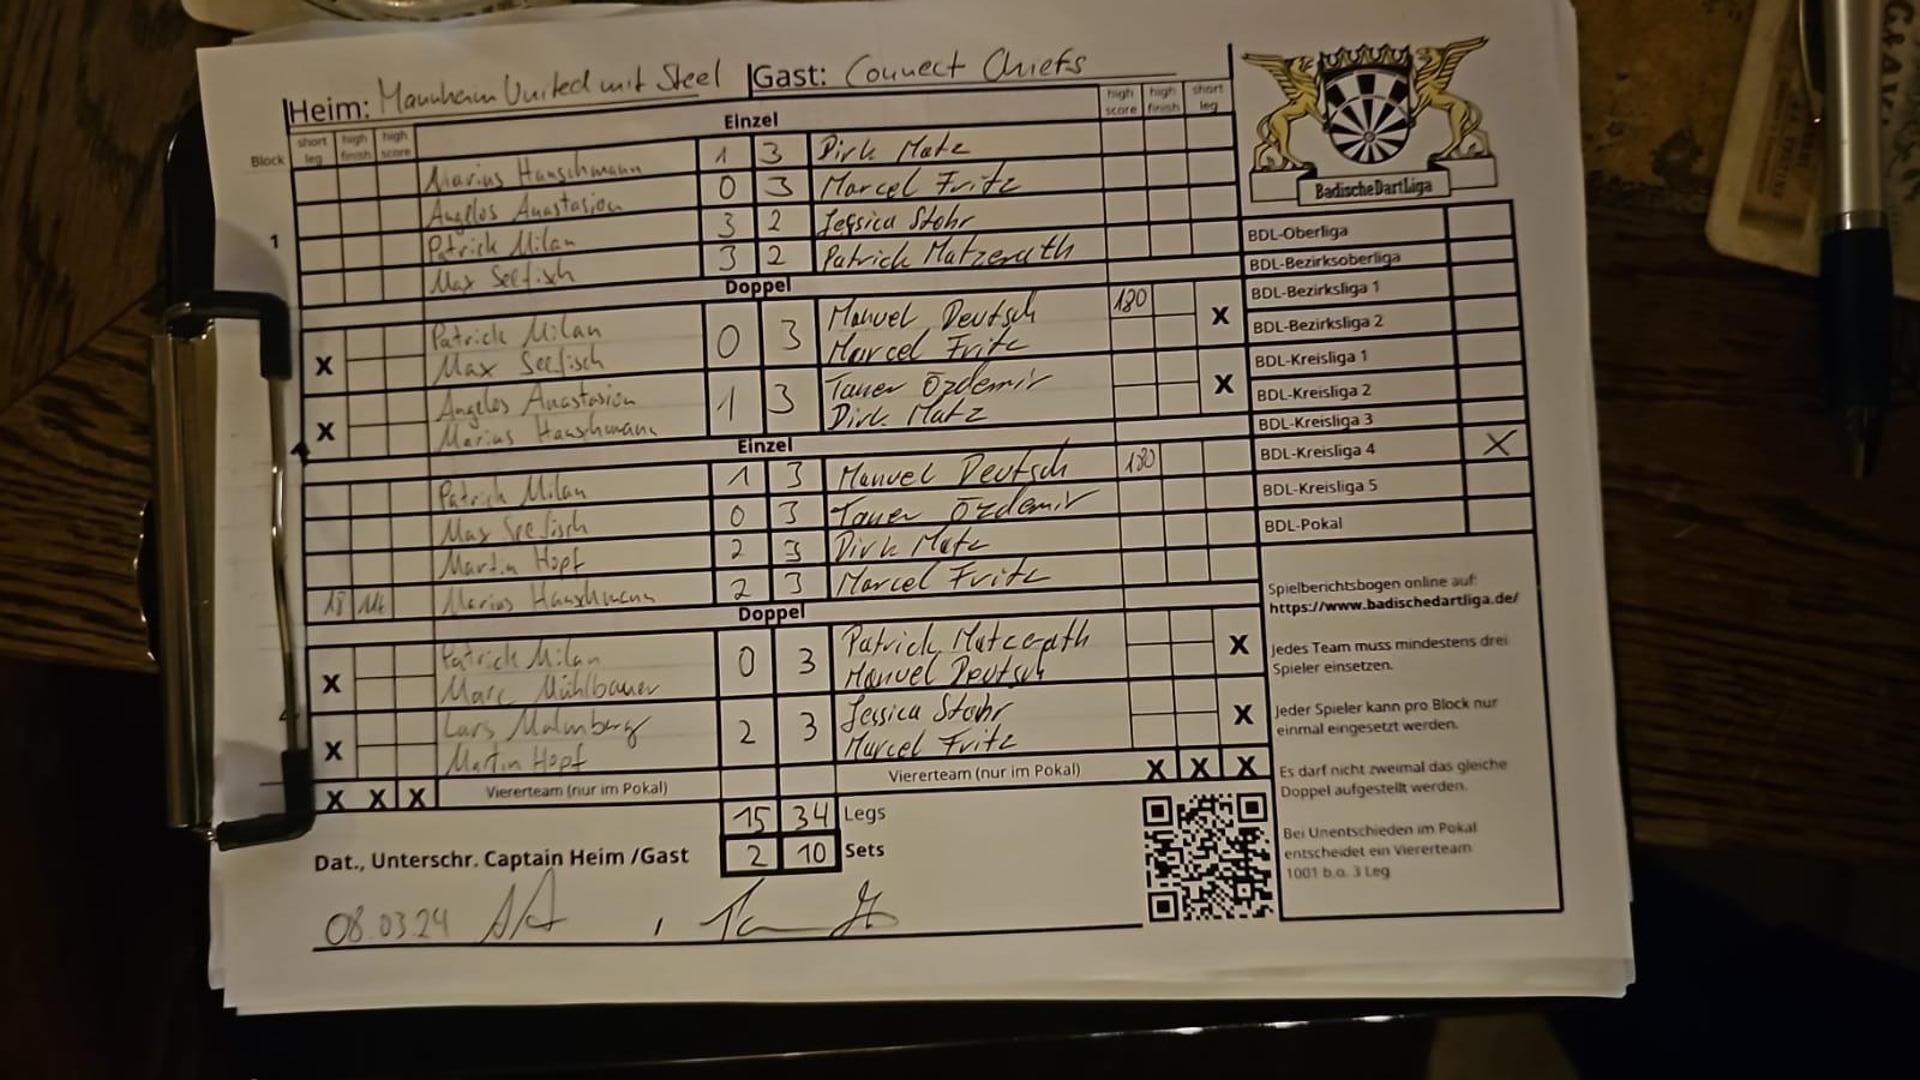 Heim: Mannheim United mit Steel Gast: Connect Chiefs
Block short leg high finish high score Einzel high score high finish short leg
Marius Hanschmann 1 3 Dirk Matz
Angelos Anastasiou 0 3 Marcel Fritz
1 Patrick Milan 3 2 Jessica Stohr
Max Seefisch 3 2 Patrick Matzerath
Doppel
X Patrick Milan 0 3 Manuel Deutsch 180 X
Max Seefisch Marcel Fritz
X Angelos Anastasiou 1 3 Taner Özdemir X
Marius Hanschmann Dirk Matz
Einzel
Patrick Milan 1 3 Manuel Deutsch 180
Max Seefisch 0 3 Taner Özdemir
Martin Hopf 2 3 Dirk Matz
18 116 Marius Hanschmann 2 3 Marcel Fritz
Doppel
X Patrick Milan 0 3 Patrick Matzerath X
Marc Mühlbauer Manuel Deutsch
X Lars Malmberg 2 3 Jessica Stohr X
Martin Hopf Marcel Fritz
X X X Viererteam (nur im Pokal) Viererteam (nur im Pokal) X X X
15 34 Legs
2 10 Sets
Dat., Unterschr. Captain Heim /Gast
08.03.24
BadischeDartLiga
BDL-Oberliga
BDL-Bezirksoberliga
BDL-Bezirksliga 1
BDL-Bezirksliga 2
BDL-Kreisliga 1
BDL-Kreisliga 2
BDL-Kreisliga 3
BDL-Kreisliga 4 X
BDL-Kreisliga 5
BDL-Pokal
Spielberichtsbogen online auf:
https://www.badischedartliga.de/
Jedes Team muss mindestens drei
Spieler einsetzen.
Jeder Spieler kann pro Block nur
einmal eingesetzt werden.
Es darf nicht zweimal das gleiche
Doppel aufgestellt werden.
Bei Unentschieden im Pokal
entscheidet ein Viererteam
1001 b.o. 3 Leg